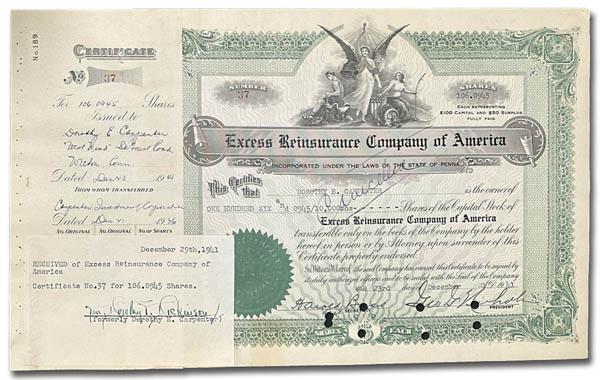 No. 189.
CERTIFICATE
No 37
For 106.0945 Shares
Issued to
Dorothy E Carpenter
West
Wilton, Conn
Dated Dec 23 1941
FROM WHOM TRANSFERRED
Carpenter Investment Corporation
Dated Dec 21 1936
NO. ORIGINAL NO. ORIGINAL NO.
December 29th, 1941
RECEIVED of Excess Reinsurance Company of
America
Certificate No.37 for 106.0945 Shares.
Mrs. Dorothy E. Dickinson
(formerly Dorothy E. Carpenter)
NUMBER
37
SHARES
106.0945
EACH REPRESENTING
$100 CAPITAL AND $50 SURPLUS
FULLY PAID
Excess Reinsurance Company of America
INCORPORATED UNDER THE LAWS OF THE STATE OF PENNA.
This Certifies
that DOROTHY E. CARPENTER is the owner of
ONE HUNDRED SIX and 0945/10,000ths Shares of the Capital Stock of
Excess Reinsurance Company of America
transferable only on the books of the Company by the holder
hereof in person or by Attorney, upon surrender of this
Certificate properly endorsed.
In Witness Whereof, the said Company has caused this Certificate to be signed by
its duly authorized officers and to be sealed with the Seal of the Company
this 23rd day of December
SECRETARY PRESIDENT
SHARES EACH